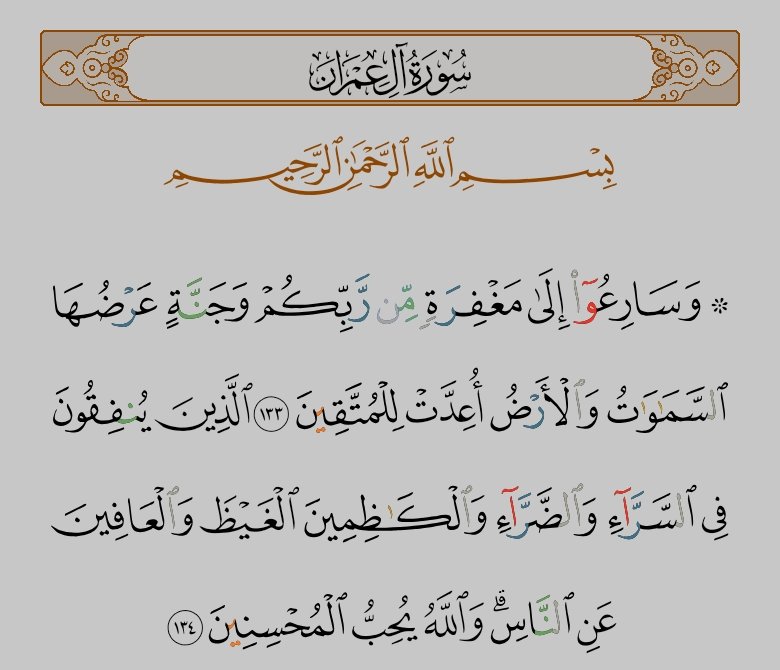 سُورَةُ آلِ عِمْرَانَ
بِسْمِ ٱللَّهِ ٱلرَّحْمَٰنِ ٱلرَّحِيمِ
۞ وَسَارِعُوٓا۟ إِلَىٰ مَغْفِرَةٍ مِّن رَّبِّكُمْ وَجَنَّةٍ عَرْضُهَا
ٱلسَّمَٰوَٰتُ وَٱلْأَرْضُ أُعِدَّتْ لِلْمُتَّقِينَ ١٣٣ ٱلَّذِينَ يُنفِقُونَ
فِى ٱلسَّرَّآءِ وَٱلضَّرَّآءِ وَٱلْكَٰظِمِينَ ٱلْغَيْظَ وَٱلْعَافِينَ
عَنِ ٱلنَّاسِ ۗ وَٱللَّهُ يُحِبُّ ٱلْمُحْسِنِينَ ١٣٤